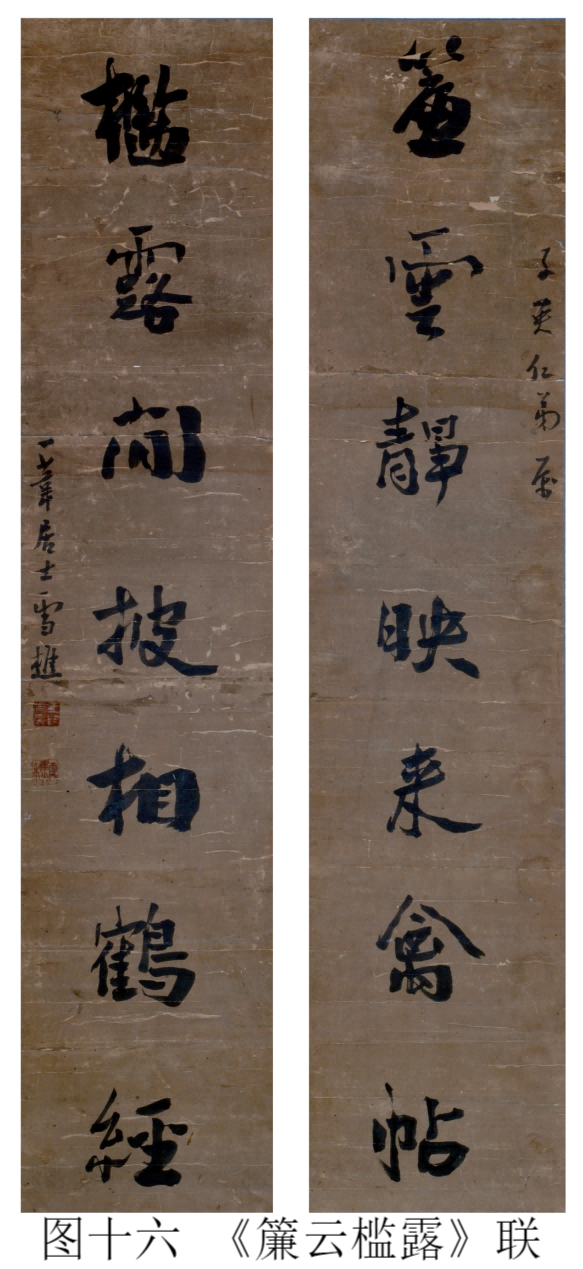 簾雲靜映来禽帖
子英仁弟屬
檻露閒披相鶴經
一葦居士雪樵
图十六 《簾云槛露》联